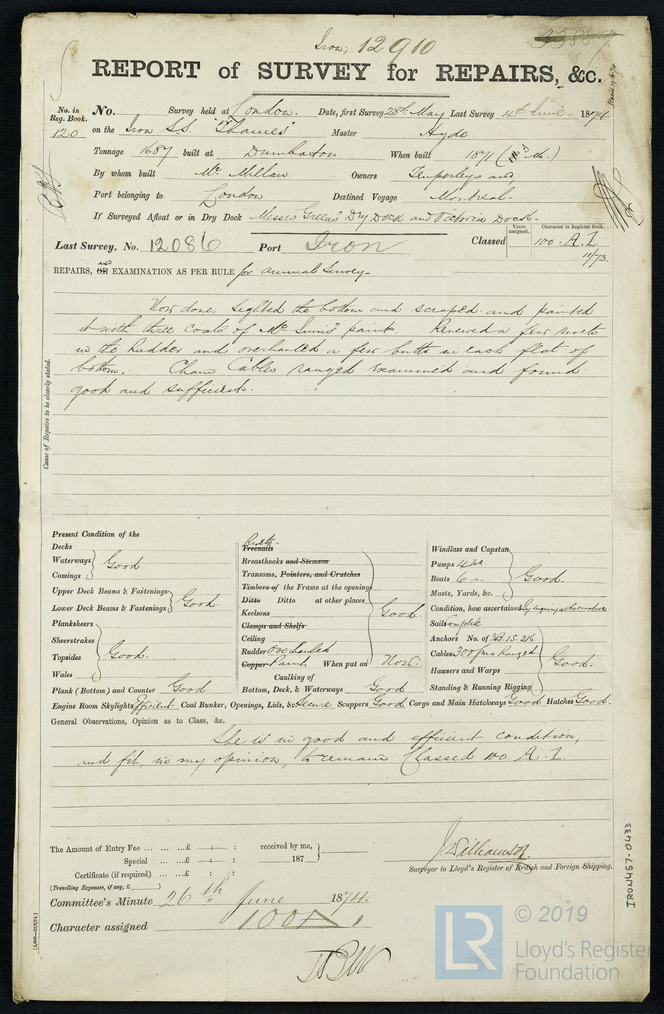 Iron, 12910
REPORT of SURVEY for REPAIRS, &c.
No. in Reg. Book. No. Survey held at London. Date, first Survey 28th May Last Survey 4th June 1874
120 on the Iron S.S. "Thames" Master Hyde
Tonnage 1687 built at Dumbarton When built 1871
By whom built Mc Millan Owners Temperleys and
Port belonging to London Destined Voyage Montreal.
If Surveyed Afloat or in Dry Dock Messrs Green's Dry Dock and Victoria Dock.
Last Survey, No. 12086 Port Iron Classed Years assigned. Character in Register Book. 100 A.1. 11/73.
REPAIRS, OR and EXAMINATION AS PER RULE for annual Survey.
Cause of Repairs to be clearly stated.
Now done, Sighted the bottom and scraped and painted
it with three coats of paint. Renewed a few rivets
in the Rudder and overhauled a few butts in each flat of
bottom. Chain Cables ranged examined and found
good and sufficient.
Present Condition of the
Decks
Waterways
Comings
Good
Upper Deck Beams & Fastenings
Lower Deck Beams & Fastenings
Good.
Planksheers
Sheerstrakes
Topsides
Wales
Good.
Plank (Bottom) and Counter Good
Rivets
Treenails
Breasthooks and Stemson
Transoms, Pointers, and Crutches
Timbers of the Frame at the openings
Ditto Ditto at other places
Keelsons
Clamps and Shelfs
Ceiling
Good.
Rudder Overhauled
Copper Paint When put on Now.
Caulking of
Bottom, Deck, & Waterways Good
Windlass and Capstan
Pumps
Boats 6
Masts, Yards, &c.
Good.
Condition, how ascertained
Sails Complete
Anchors No. of 3B. 1S. 2K.
Cables 300 fms Ranged
Hawsers and Warps
Standing & Running Rigging
Good.
Engine Room Skylights Efficient Coal Bunker, Openings, Lids, &c. Secure Scuppers Good Cargo and Main Hatchways Good Hatches Good.
General Observations, Opinion as to Class, &c.
She is in good and efficient condition,
and fit, in my opinion, to remain Classed 100 A.1.
The Amount of Entry Fee ... ... ...£ : : received by me,
Special ... ...£ : : 187
Certificate (if required) ... ...£ : :
(Travelling Expenses, if any, £ )
J Williamson
Surveyor to Lloyd's Register of British and Foreign Shipping.
Committee's Minute 26th June 1874.
Character assigned 100 A 1
IRON457-0433
© 2019
LR Lloyd's Register
Foundation